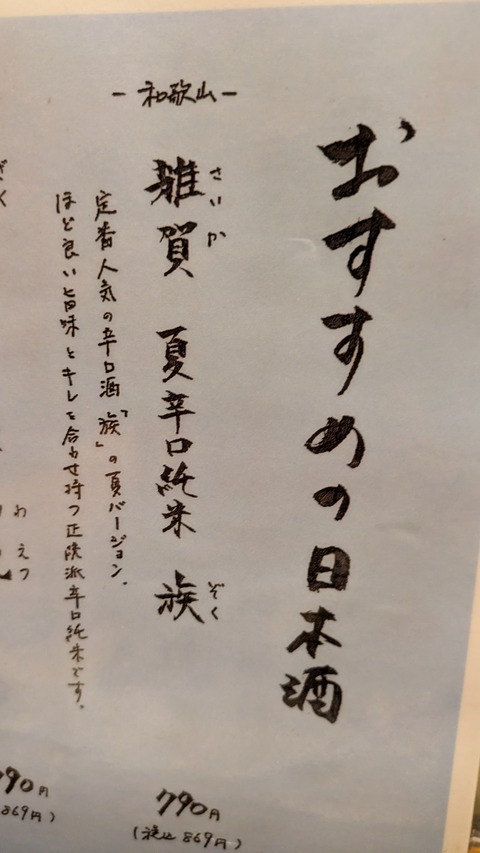 おすすめの日本酒
-和歌山-
さいか
雑賀 夏辛口純米 族
ぞく
定番人気の辛口酒「族」の夏バージョン。
ほど良い旨味とキレを合わせ持つ正統派辛口純米です。
790円
(税込869円)
わえつ
790円
869円)